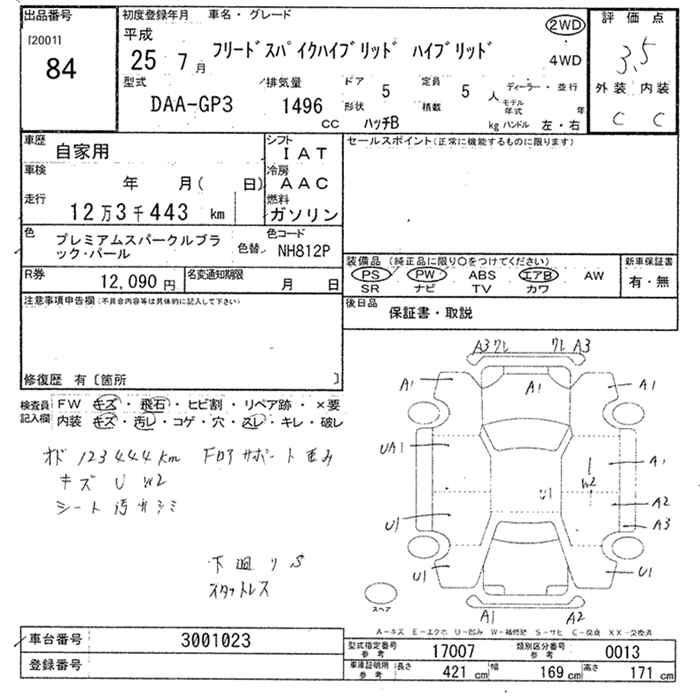 出品番号
[2001]
84
初度登録年月 車名・グレード
平成
25 7月 フリードスパイクハイブリッド ハイブリッド
2WD
4WD
型式 排気量 ドア 5 定員 5人 ディーラー・並行
DAA-GP3 1496 cc 形状 ハッチB 積載 kg モデル年式 年 ハンドル 左・右
評価点
3.5
外装 内装
C C
車歴 自家用
シフト IAT
車検 年 月( 日)
冷房 AAC
走行 12万3千443 km
燃料 ガソリン
セールスポイント(正常に機能するものに限ります)
色 プレミアムスパークルブラック・パール 色替
色コード NH812P
R券 12,090円 名変通知期限 月 日
装備品 (純正品に限り○をつけてください) 新車保証書
PS PW ABS エアB AW 有・無
SR ナビ TV カワ
後日品 保証書・取説
注意事項申告欄(不具合内容等は具体的に記入して下さい)
修復歴 有〔箇所 〕
検査員記入欄
FW キズ・飛石・ヒビ割・リペア跡・×要
内装 キズ・汚レ・コゲ・穴・スレ・キレ・破レ
123444km
キズ U W2
シート汚れシミ
下廻り S
スタットレス
A3 ワレ ワレ A3
A1 A1 A1
UA1 A1
U1 W2 A2
U1 A3
U1 U1
スペア
A1 A2
A-キズ E-エクボ U-凹み W-補修跡 S-サビ C-腐食 XX-交換済
車台番号 3001023
登録番号
型式指定番号 参考 17007 類別区分番号 参考 0013
車庫証明用 参考 長さ 421 cm 幅 169 cm 高さ 171 cm